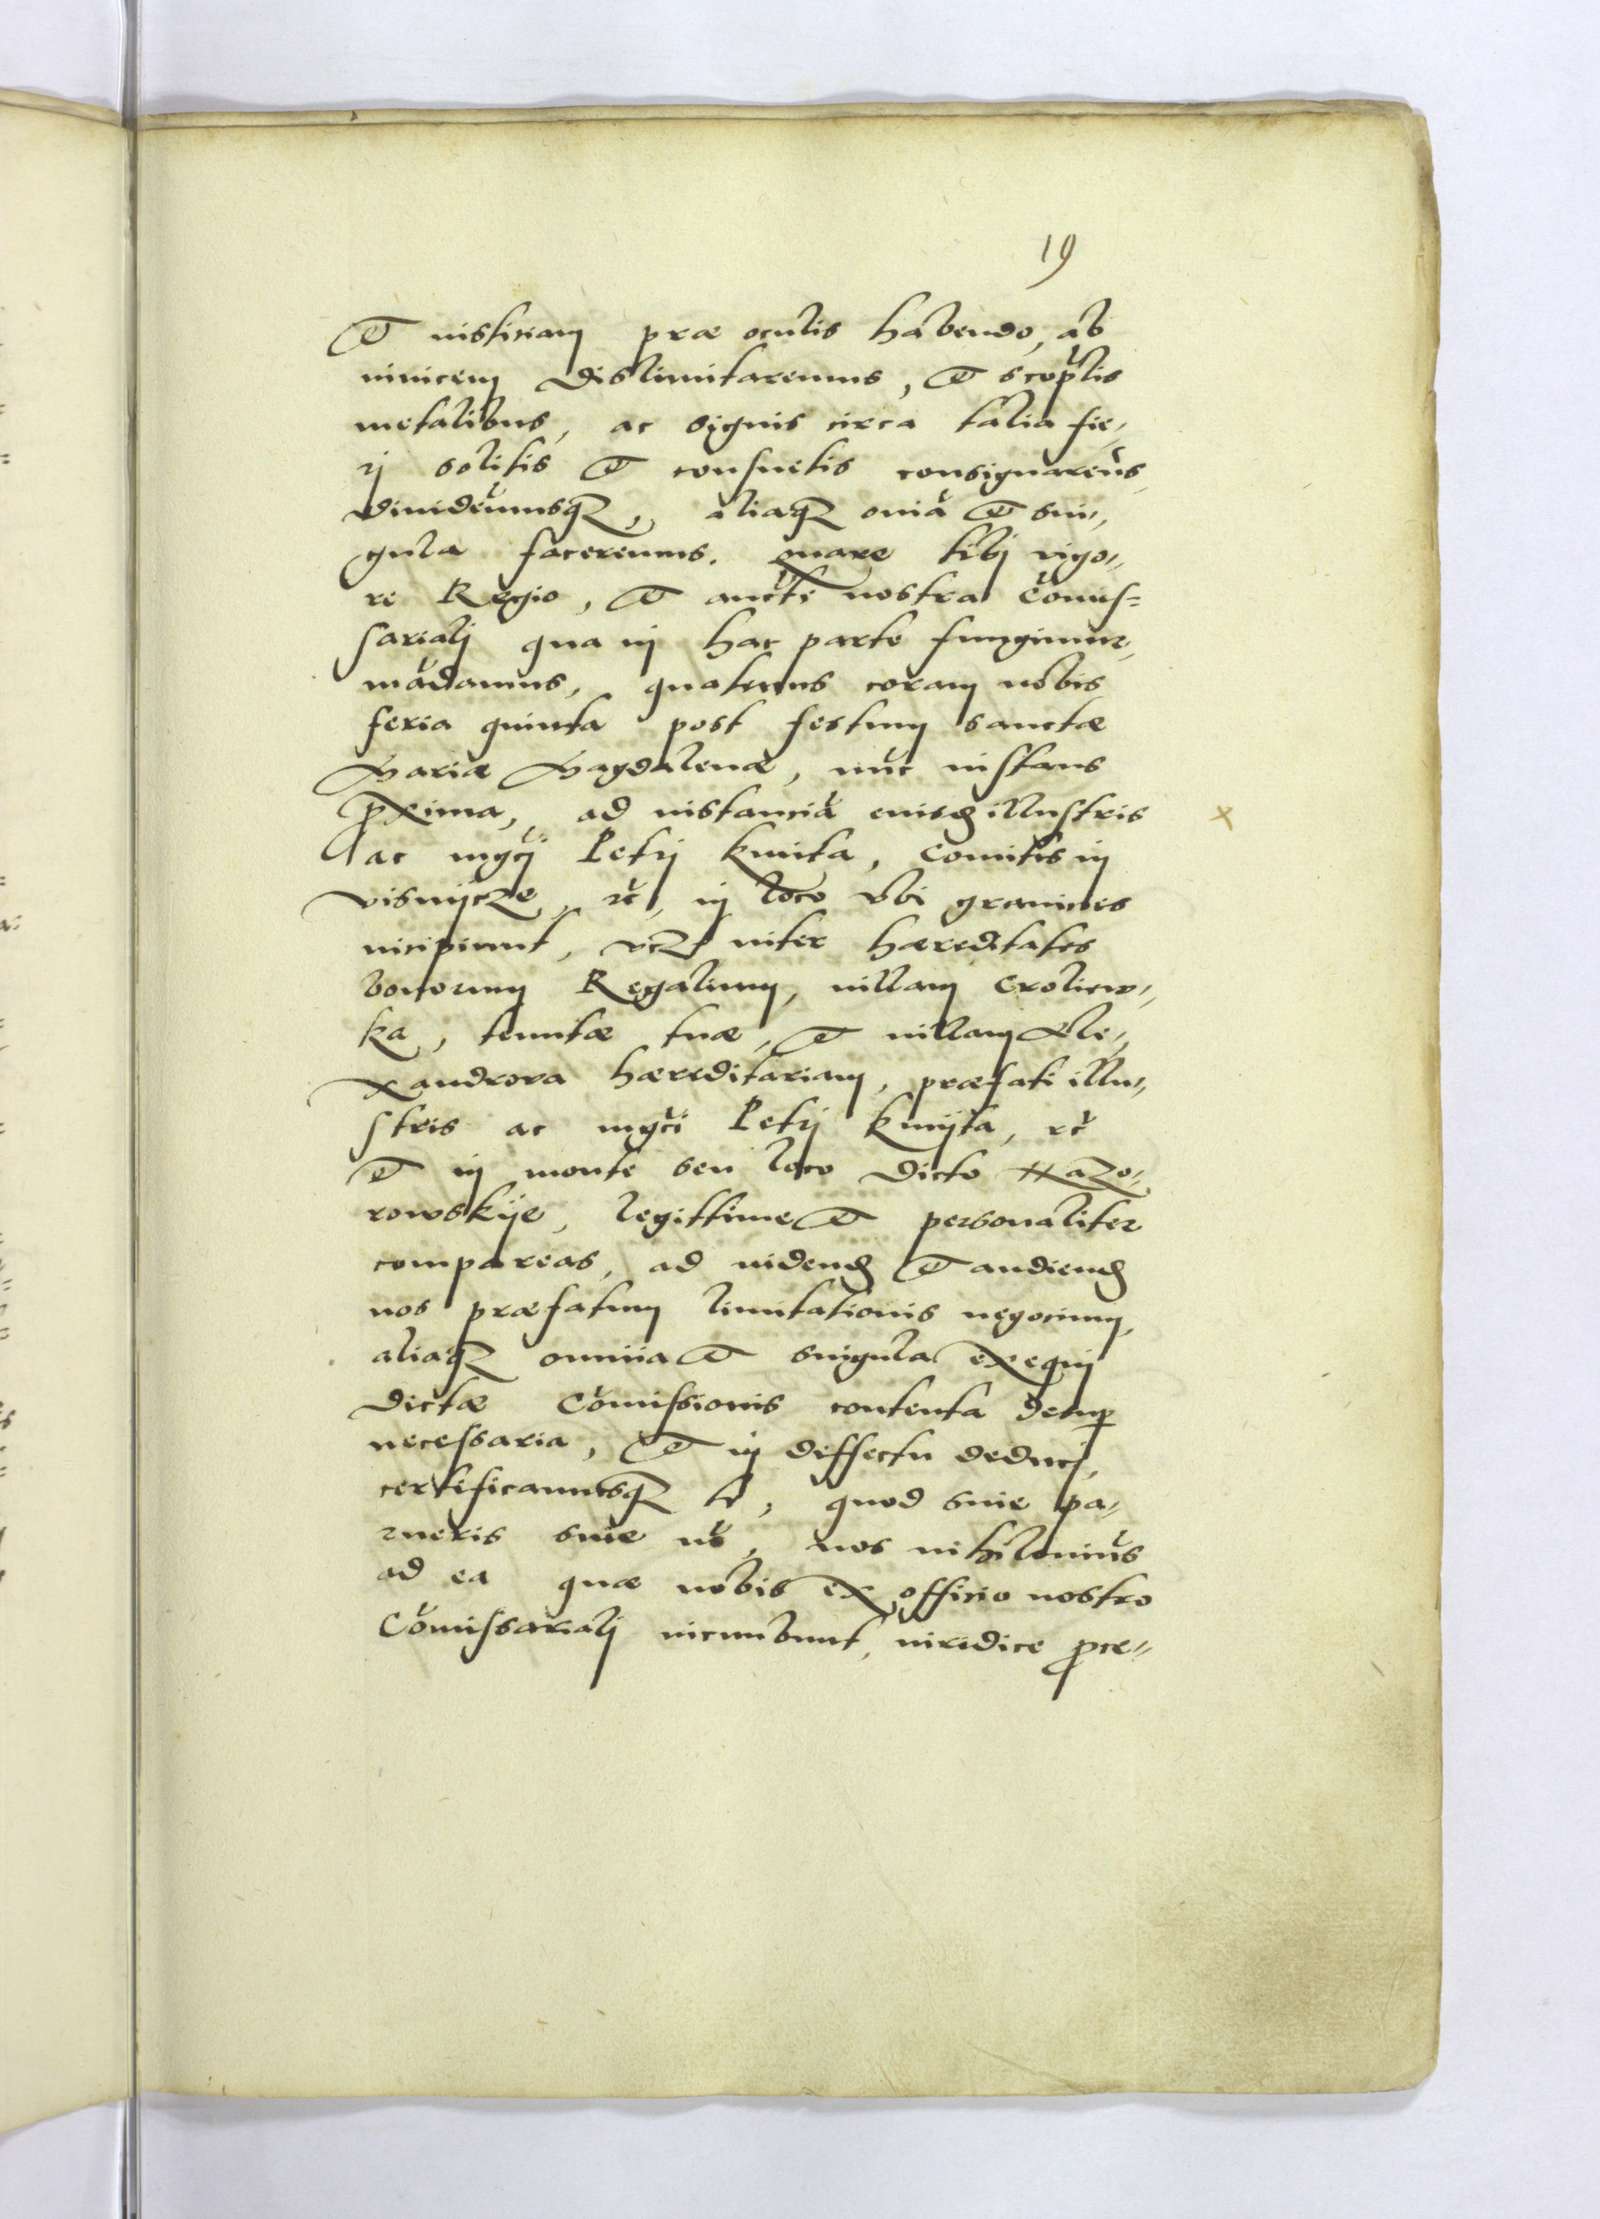 19
Et iusticiam prae oculis habendo, ab
inuicem dislimitaremus, Et scop̃lis
metalibus, ac signis circa talia fie-
rj solitis Et consuetis consignarem̃s
diuidem̃usq3, aliaq3 om̃ia Et sin-
gula faceremus. quare tibj rigo-
re Regio, Et auc̃te nostra Com̃is=
sarialj qua in hac parte fungimur,
mãdamus, quatenus coram nobis
feria quinta post festum sanctae
Mariae Magdalenae, nũc instans
proxima, ad instanciã eiusd illustris
ac mgc̃j Petrj kmita, Comitis in
visnijcze, rc̃, in loco vbi granicies
incipiunt, vcz inter haereditates
bonorum Regalium, uillam Croliew-
ka, tenutae tuae, Et uillam Ale-
xandrowa haereditariam, praefati illu-
stris ac mgc̃i Petrj kmijta, rc̃
Et in monte seu loco dicto
rowskije, legittime Et personaliter
compareas, ad uidend Et audiend
nos praefatum limitationis negocium,
aliaq3 omnia Et singula exequj
dictae Com̃issionis contenta
necessaria, Et in deffectu deducj,
certificamusq3 te, quod siue pa-
rueris siue nõ, nos nihilomin̾s
ad ea quae nobis ex officio nostro
Com̃issarialj incumbunt, iuridice proce-
x